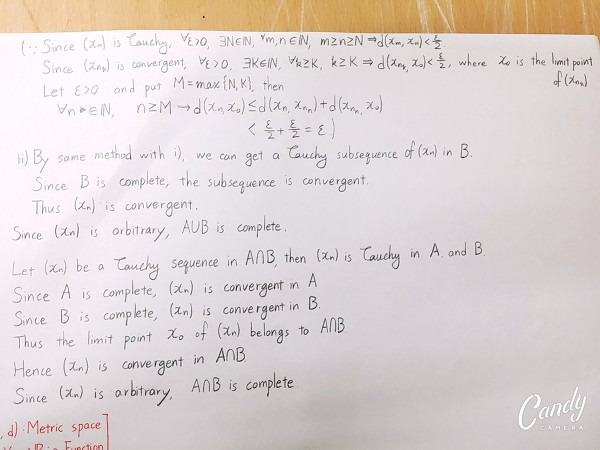 (∵ Since (xn) is Cauchy, ∀ε>0, ∃N∈ℕ, ∀m,n∈ℕ, m≥n≥N ⇒ d(xm, xn)<ε/2
Since (xnk) is convergent, ∀ε>0, ∃K∈ℕ, ∀k≥K, k≥K ⇒ d(xnk, x0)<ε/2, where x0 is the limit point of (xnk)
Let ε>0 and put M=max{N,K}, then
∀n∈ℕ, n≥M → d(xn, x0)≤d(xn, xnn)+d(xnn, x0)
< ε/2+ε/2=ε)
ii) By same method with i), we can get a Cauchy subsequence of (xn) in B.
Since B is complete, the subsequence is convergent.
Thus (xn) is convergent.
Since (xn) is arbitrary, A∪B is complete.
Let (xn) be a Cauchy sequence in A∩B, then (xn) is Cauchy in A and B.
Since A is complete, (xn) is convergent in A
Since B is complete, (xn) is convergent in B.
Thus the limit point x0 of (xn) belongs to A∩B
Hence (xn) is convergent in A∩B.
Since (xn) is arbitrary, A∩B is complete
, d) : Metric space
Function
Candy
CAMERA